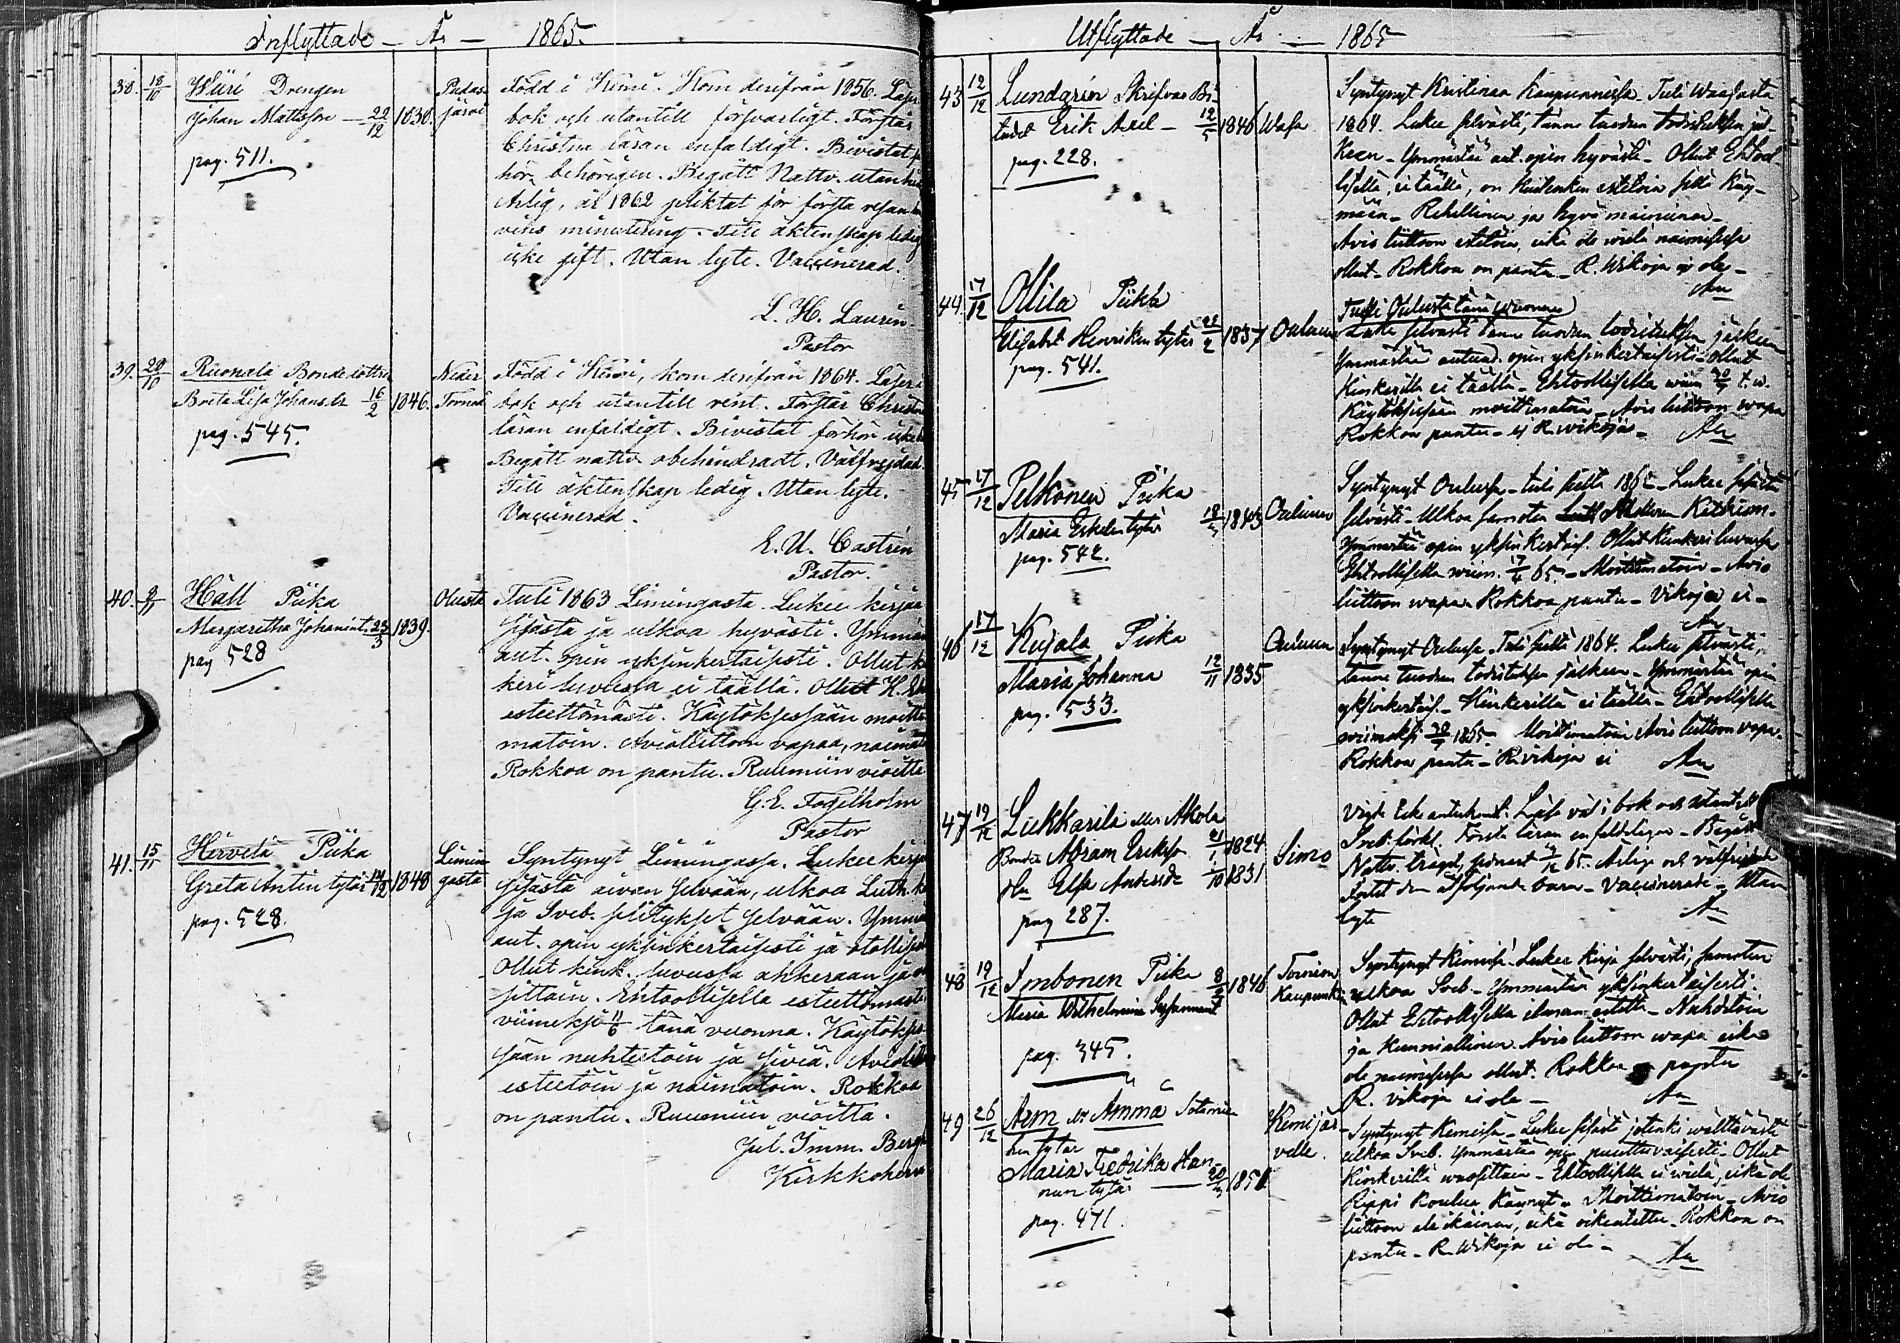 Inflyttade — År — 1865.
38. 18/10 Wiiri Drengen
Johan Mattsson 22/12 1830. Pudas-
järvi
pag. 511.
Född i Kemi. Kom derifrån 1856. Läser i
bok och utantill försvarligt. Förstår
Christna läran enfaldigt. Bevistat
behörigen. Begått Nattv. utan
Ärlig, år 1862 pliktat för första resan
vins minutering. Till äktenskap ledig
icke gift. Utan lyte. Vaccinerad.
L. H. Laurin.
Pastor
39. 20/10 Ruonala Bondedotter
Breta Lisa Johansdr 16/2 1846. Neder
Torneå
pag. 545.
Född i Kemi, kom derifrån 1864. Läser i
bok och utantill rent. Förstår Christna
läran enfaldigt. Bevistat förhör
Begått nattv. obehindradt. Välfrejdad.
Till äktenskap ledig. Utan lyte.
Vaccinerad.
E. U. Castrén
Pastor.
40. 9/11 Häll Piika
Margaretha Johanint. 23/3 1839. Oulusta
pag 528
Tuli 1863 Limingasta. Lukee kirjaa
sisästä ja ulkoa hyvästi. Ymmär
aut. opin yksinkertaisesti. Ollut
keri luvussa ei täällä. Ollut H. E
esteettömästi. Käytöksessään moitti
matoin. Avioliittoon vapaa, naimat
Rokkoa on pantu. Ruumiin vioitta
G. E. Fogelholm
Pastor
41. 15/11 Hirvelä Piika
Greta Antin tytär 14/12 1848 Limin
gasta
pag. 528.
Syntynyt Limingassa. Lukee kirjaa
sisästä aivan selvään, ulkoa Luth. k
ja Sveb. selitykset selvään. Ymmä
aut. opin yksinkertaisesti ja
Ollut kink. luvussa ahkeraan ja
sittoin. Ehtoollisella esteettömästi
viimeksi 11/6 tänä vuonna. Käytökses
sään nuhtetoin ja siviä. Aviolii
esteetöin ja naimatoin. Rokkoa
on pantu. Ruumiin vioitta.
Jul. Imm. Bergh
Kirkkoherra
Utflyttade — År — 1865
43 12/12 Lundgrén Skrifvare Bi-
trädet Erik Axel — 12/5 1846 Wasa
pag. 228.
Syntynyt Kristinan Kaupunnissa. Tuli Waasasta
1864. Lukee selvästi, tänne tuodun todistuksen jäl-
keen — Ymmärtää aut. opin hyvästi — Ollut Ehtool-
lisella, ei täällä, on kuitenkin estetöin sillä käy-
mään — Rehellinen ja hyvä maininen —
Avio liittoon estetöin, eikä ole vielä naimisissa
ollut — Rokkoa on pantu — R. Wikoja ei ole —
44. 17/12 Ollila Piika
Elisabet Henrikin tytär 22/2 1837 Ouluun
pag. 541.
Tuli Oulusta tänä vuonna
Lukee selvästi tänne tuodun todistuksen jälkeen
Ymmärtää autuud. opin yksinkertaisesti — Ollut
Kinkerillä ei täällä — Ehtoollisella wiim 30/7 t. w.
Käytöksissään moittimatoin — Avio liittoon wapa
Rokkoa pantu — ej R. wikoja —
45 17/12 Pelkonen Piika
Maria Eskelin tytär 18/5 1843 Ouluun
pag. 542.
Syntynyt Oulussa — tuli sieltä 186 — Lukee sisästä
selvästi — Ulkoa samoten Katkism.
Ymmärtää opin yksinkertais. Ollut Kinkeri luvussa
Ehtoollisella wiim. 7/4 65. — Moittimatoin — Avio
liittoon wapaa Rokkoa pantu — Vikoja ei —
46 17/12 Kujala Piika
Maria Johanna 12/11 1835 Ouluun
pag. 533.
Syntynyt Oulussa Tuli sieltä 1864. Lukee selvästi,
tänne tuodun todistuksen jälkeen — Ymmärtää opin
yksinkertais. — Kinkerillä ei täällä — Ehtoollisella
wiimeksi 30/7 1865. Moittimatoin Avio liittoon vapa.
Rokkoa pantu — R. vikoja ei
47 19/12 Liekkarila eller Akola
Bonden Abram Eriksson 21/1 1824
Hu Elsa Andersdr 1/10 1831 Simo
pag 287.
bok och utantill
Sveb. förkl. Förstå läran enfaldeligen — Begått
Nattv. trägit, senast 65. Ärliga och välfrejdade
barn — Vaccinerade — Utan
lyte
48 19/12 Imbonen Piika 8/5 1846 Tornion
Maria Wilhelmina Kaupunkiin
pag. 345.
Syntynyt Kemissä. Lukee kirja selvästi, samoten
ulkoa Sveb — Ymmärtää yksinkertaisesti.
Ollut Ehtoollisella ilman estettä — Nuhtetoin
ja kunniallinen. Avio liittoon wapa eikä
ole naimisissa ollut. Rokkoa pantu
R. vikoja ei ole —
49 26/12 Arm. Ämmä
Maria Fredrika Han-
nun tytär 20/3 1850 Kemijär
velle.
pag. 471.
Syntynyt Kemissä — Lukee sisäst. jotenki wälttäwästi
ulkoa Sveb. Ymmärtää opin puuttuvaisesti — Ollut
Kinkerillä — Ehtoollisella ei wielä, eikä ole
Rippi koulua käynyt — Moittimatoin — Avio
liittoon ala ikäinen, eikä oikeutettu — Rokkoa on
pantu — R. Wikoja ei ole —